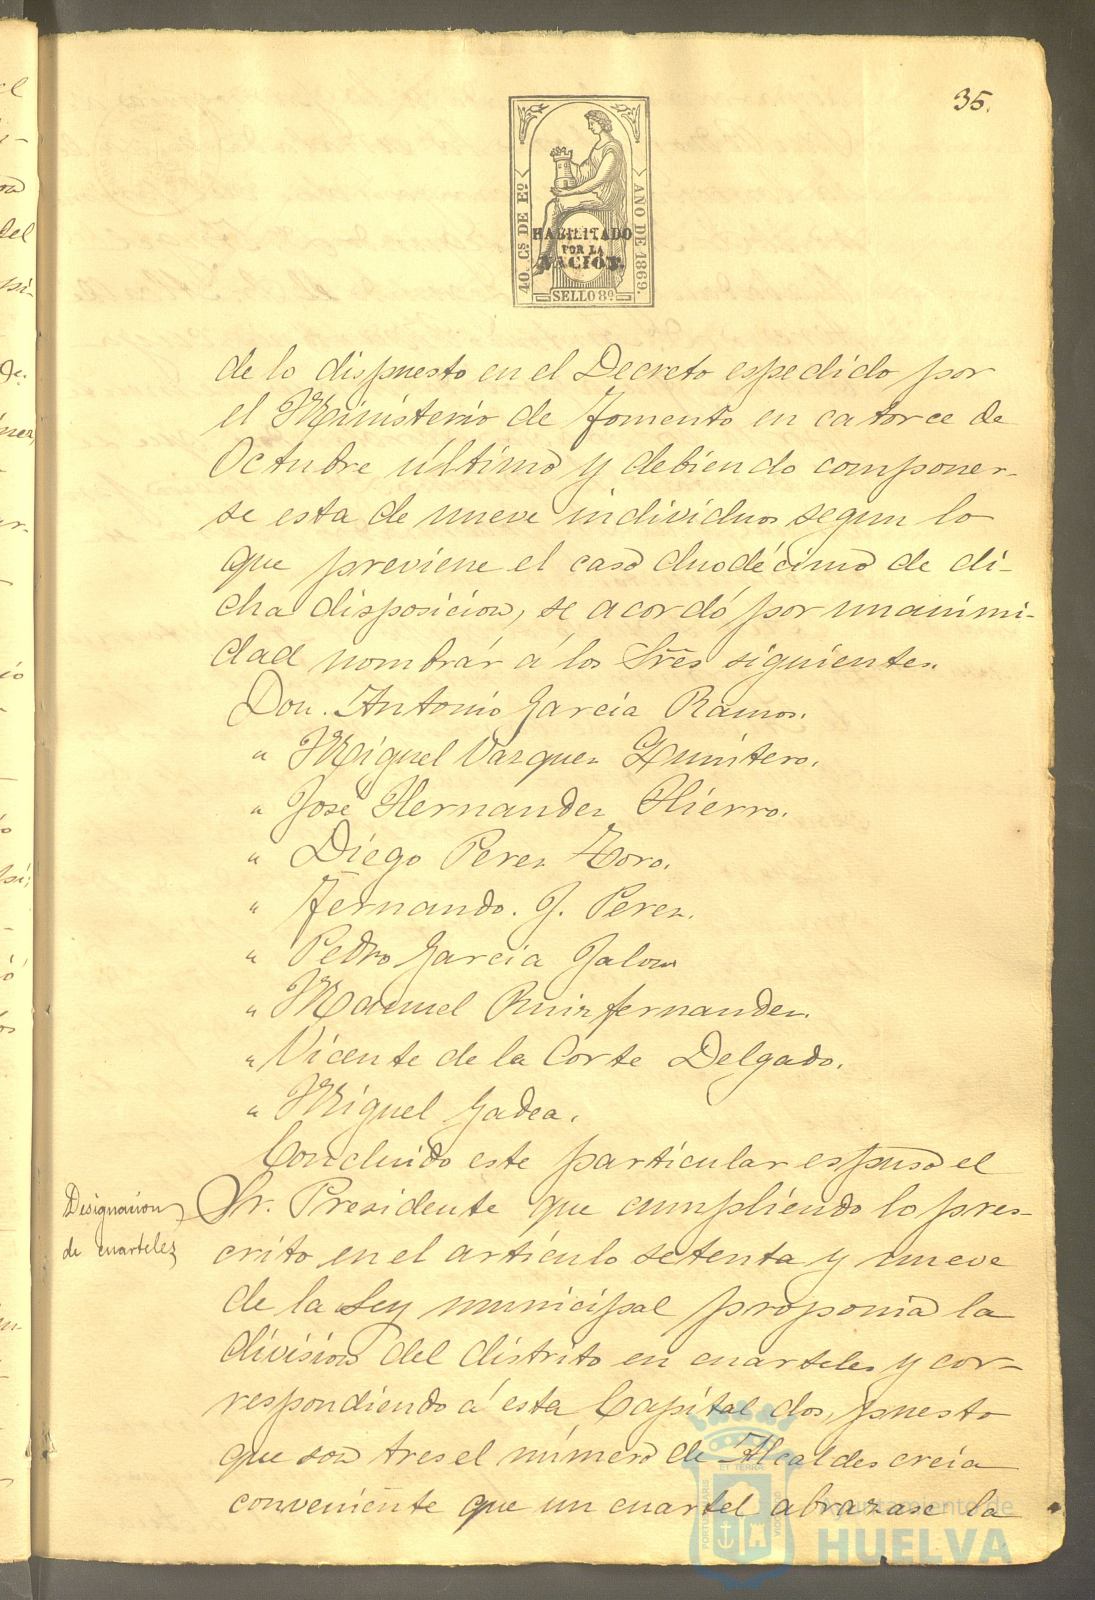 35.
40. Cs DE Eo
AÑO DE 1869.
HABILITADO
POR LA
NACION.
SELLO 8º
de lo dispuesto en el Decreto espedido por
el Ministerio de Fomento en catorce de
Octubre último y debiendo componer-
se esta de nueve individuos segun lo
que previene el caso duodécimo de di-
cha disposicion, se acordó por unanimi-
dad nombrár á los Sres siguientes.
Don. Antonio Garcia Ramos.
" Miguel Vazquez Quintero.
" José Hernandez Hierro.
" Diego Perez Toro.
" Fernando. J. Perez.
" Pedro Garcia Jalon
" Manuel Ruiz fernandez.
" Vicente de la Corte Delgado.
" Miguel Gadea.
Concluido este particular espuso el
Designacion
de cuarteles
Sr. Presidente que cumpliendo lo pres-
crito en el artículo setenta y nueve
de la Ley municipal proponia la
division del distrito en cuarteles y cor-
respondiendo á esta Capital dos, puesto
que son tres el número de Alcaldes creia
conveniente que un cuartel abrazase la
Ayuntamiento de
HUELVA